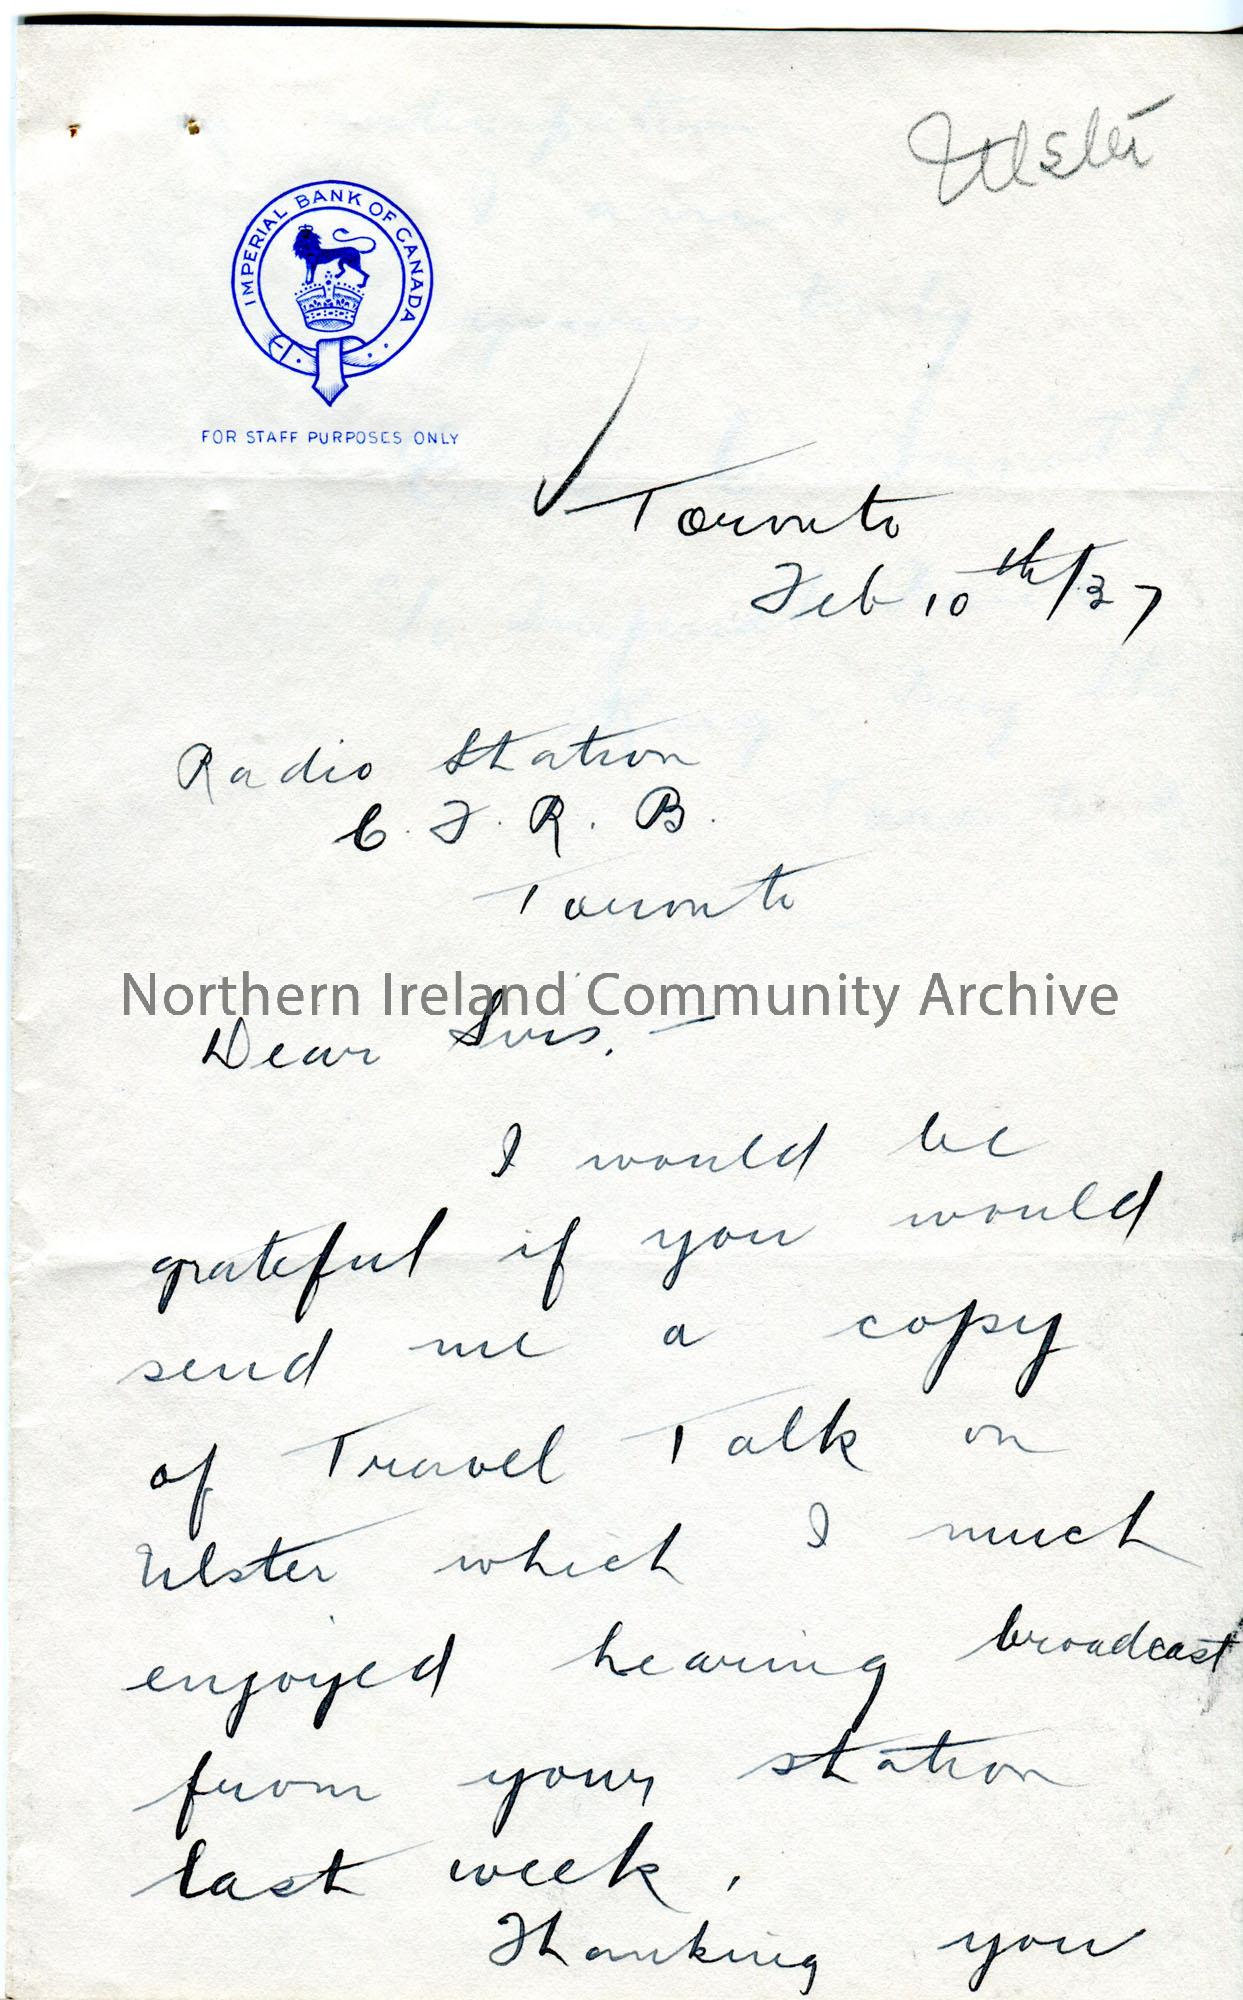 Ulster
IMPERIAL BANK OF CANADA
FOR STAFF PURPOSES ONLY
Toronto
Feb 10th/37
Radio Station
C. F. R. B.
Toronto
Northern Ireland Community Archive
Dear Sirs, —
I would be
grateful if you would
send me a copy
of Travel Talk on
Ulster which I much
enjoyed hearing broadcast
from your station
last week.
Thanking you